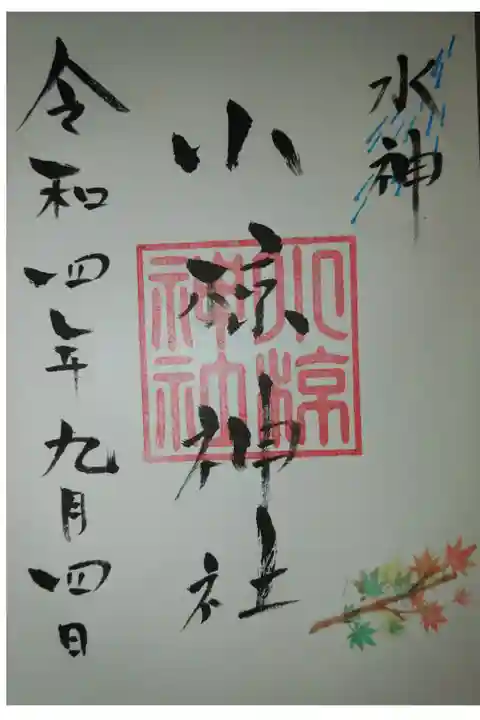 水神
小椋神社
小椋
神社
令和四年九月四日